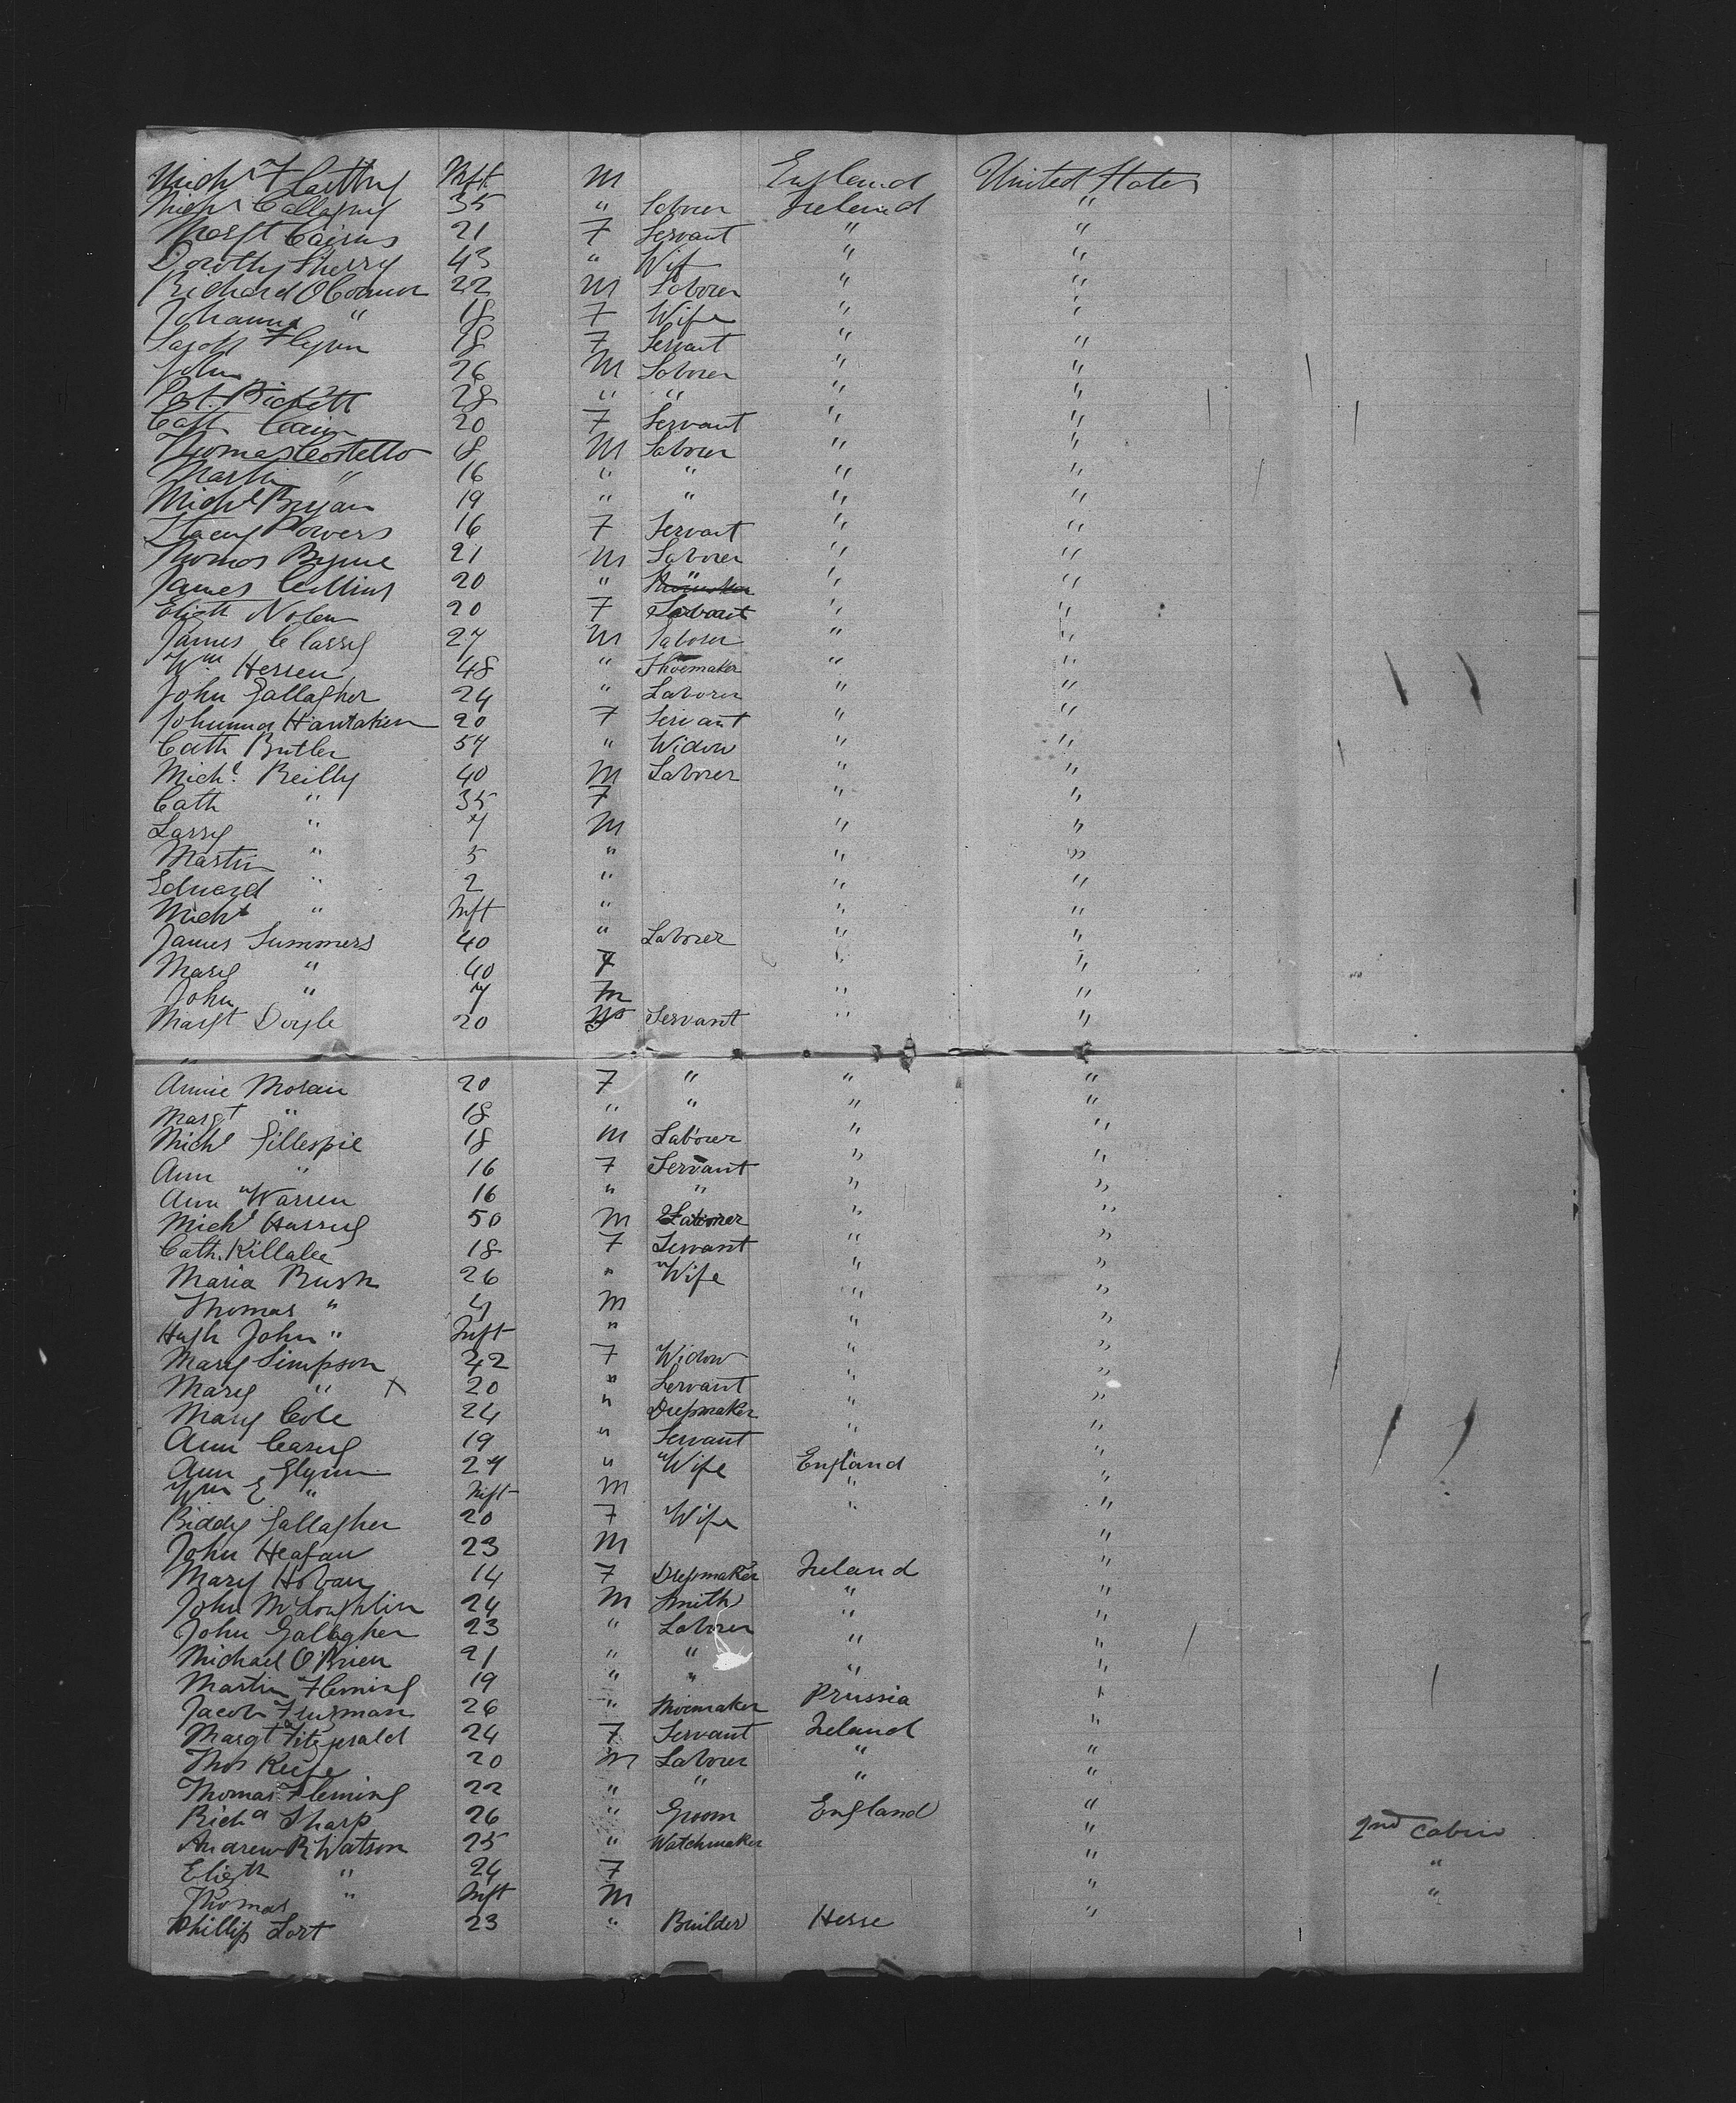 Michl Flattery Inft. M England United States
Michl Callaghy 35 " Laborer Ireland "
Margt Cairns 21 F Servant " "
Dorothy Sherry 43 " Wife " "
Richard OConnor 22 M Laborer " "
Johanna " 18 F Wife " "
Sarah Flynn 18 F Servant " "
John 26 M Laborer " "
Pat. Rickett 28 " " " "
Cath Cain 20 F Servant " "
Thomas Costello 18 M Laborer " "
Martin " 16 " " " "
Michl Bryan 19 " " " "
Stacey Powers 16 F Servant " "
Thomas Byrne 21 M Laborer " "
James Collins 20 " " " "
Elizth Nolan 20 F Servant " "
James Classy 27 M Laborer " "
Wm Herren 48 " Shoemaker " "
John Gallagher 24 " Laborer " "
Johanna 20 F Servant " "
Cath Butler 57 " Widow " "
Michl. Reilly 40 M Laborer " "
Cath " 35 F " "
Larry " 7 M " "
Martin " 5 " " "
Edward " 2 " " "
Michl " Inft " " "
James Summers 40 " Laborer " "
Mary " 40 F " "
John " 7 M " "
Margt Doyle 20 F Servant " "
Annie Moran 20 F " " "
Margt " 18 " " " "
Michl Gillespie 18 M Laborer " "
Ann " 16 F Servant " "
Ann Warren 16 " " " "
Michl 50 M Laborer " "
Cath. Killalee 18 F Servant " "
Maria Rush 26 " Wife " "
Thomas " 4 M " "
Hugh John " Inft " " "
Mary Simpson 42 F Widow " "
Mary " X 20 " Servant " "
Mary Cole 24 " Dressmaker " "
Ann Casey 19 " Servant " "
Ann Glynn 27 " Wife England "
Wm E " Inft M " "
Biddy Gallagher 20 F Wife " "
John Heafan 23 M "
Mary Hoban 14 F Dressmaker Ireland "
John McLoughlin 24 M Smith " "
John Gallagher 23 " Laborer " "
Michael O'Brien 21 " " " "
Martin Fleming 19 " " " "
Jacob Furman 26 " Shoemaker Prussia "
Margt Fitzgerald 24 F Servant Ireland "
Thos Keefe 20 M Laborer " "
Thomas Fleming 22 " " " "
Richd Sharp 26 " Groom England "
Andrew R Watson 25 " Watchmaker " 2nd Cabin
Elizth " 24 F " "
Thomas " Inft M " "
Phillip Lort 23 " Builder Hesse "